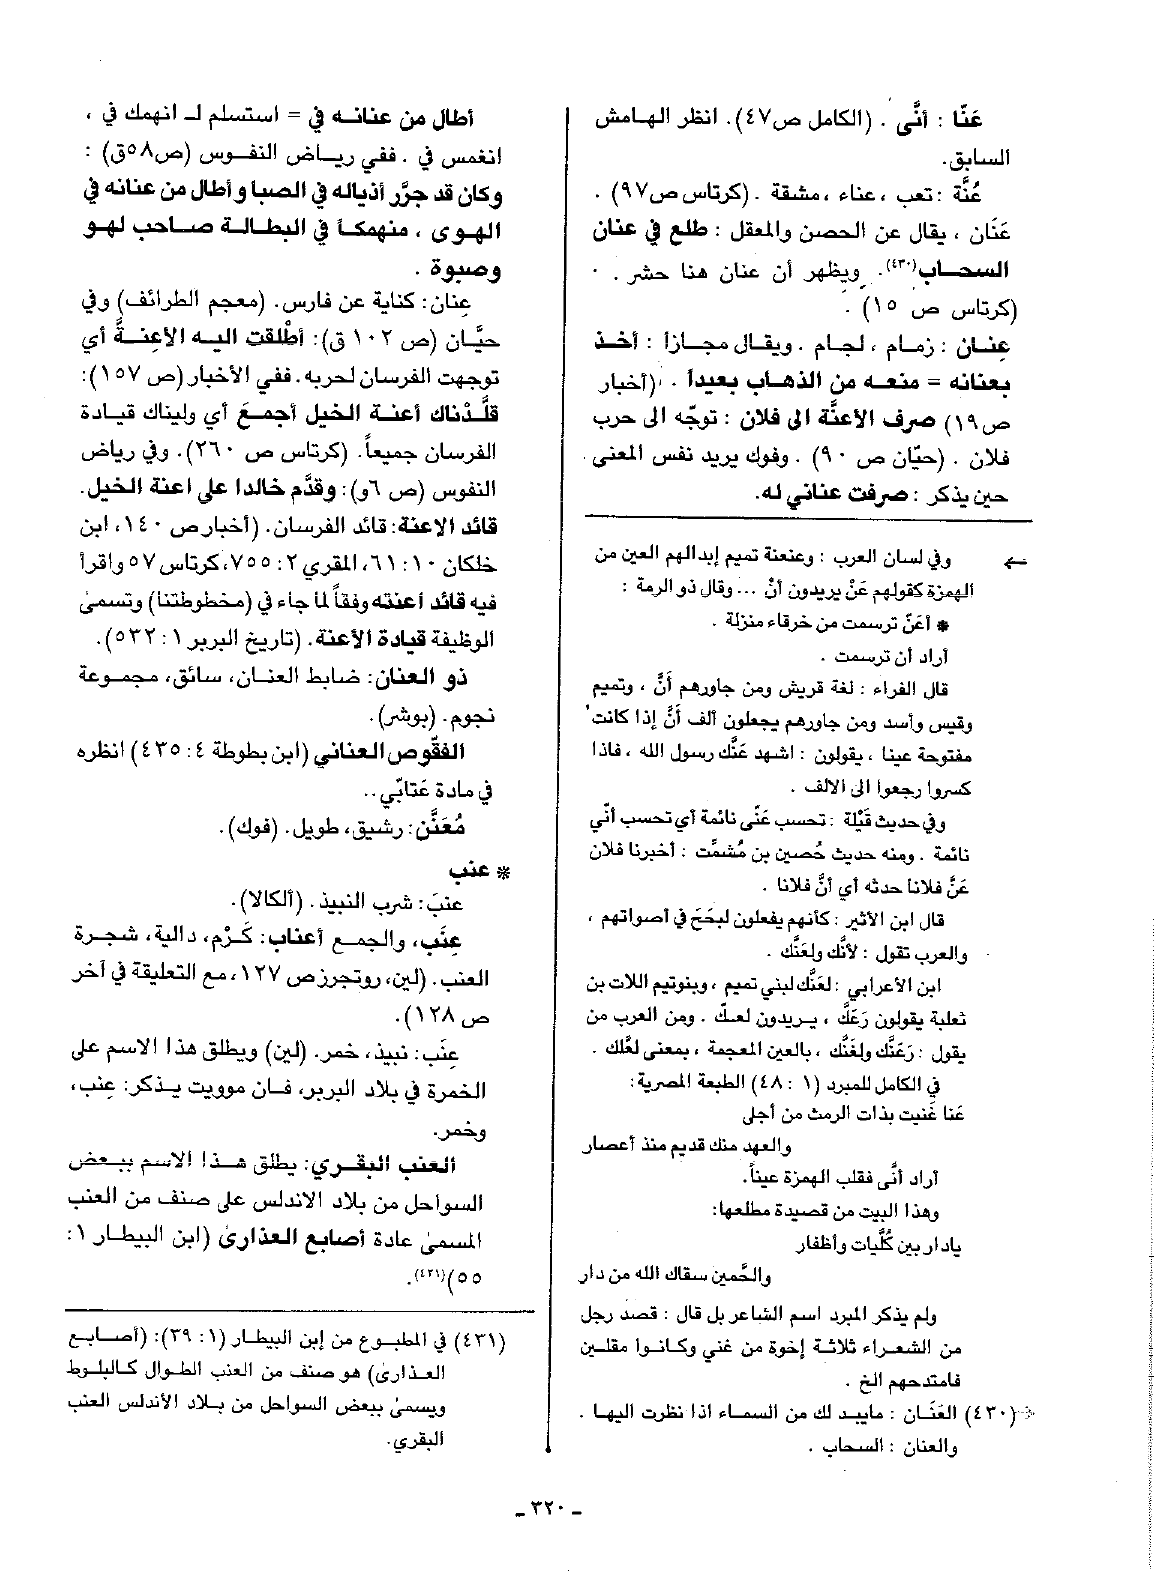 عَنّا : أنَّى . (الكامل ص٤٧). انظر الهامش
السابق.
عُنَّة : تعب ، عناء ، مشقة . (كرتاس ص٩٧) .
عَنَان ، يقال عن الحصن والمعقل : طلع في عنان
السحاب(٤٣٠). ويظهر أن عنان هنا حشر .
(كرتاس ص ١٥) .
عِنان : زمام ، لجام . ويقال مجازاً : أخذ
بعنانه = منعه من الذهاب بعيداً . (أخبار
ص١٩) صرف الأعنَّة الى فلان : توجّه الى حرب
فلان . (حيّان ص ٩٠) . وفوك يريد نفس المعنى
حين يذكر : صرفت عناني له.
← وفي لسان العرب : وعنعنة تميم إبدالهم العين من
الهمزة كقولهم عَنْ يريدون أنْ ... وقال ذو الرمة :
* أعَنّ ترسمت من خرقاء منزلة .
أراد أن ترسمت .
قال الفراء : لغة قريش ومن جاورهم أَنَّ ، وتميم
وقيس وأسد ومن جاورهم يجعلون ألف أَنَّ إذا كانت
مفتوحة عينا ، يقولون : اشهد عَنَّك رسول الله ، فاذا
كسروا رجعوا الى الألف .
وفي حديث قَيْلة : تحسب عَنّى نائمة أي تحسب أنّي
نائمة . ومنه حديث حُصين بن مُشمَّت : أخبرنا فلان
عَنَّ فلانا حدثه أي أنَّ فلانا .
قال ابن الأثير : كأنهم يفعلون لبَحَح في أصواتهم ،
والعرب تقول : لأنَّك ولعَنَّك .
ابن الأعرابي : لعَنَّك لبني تميم ، وبنوتيم اللات بن
ثعلبة يقولون رَعَنَّك ، يريدون لعلّك . ومن العرب من
يقول : رَعَنَّك ولغَنَّك ، بالغين المعجمة ، بمعنى لعَلَّك .
في الكامل للمبرد (١ : ٤٨) الطبعة المصرية :
عَنا غَنيت بذات الرمث من أجلى
والعهد منك قديم منذ أعصار
أراد أنَّى فقلب الهمزة عيناً.
وهذا البيت من قصيدة مطلعها:
يادار بين كُلَّيات وأظفار
والحَّمين سقاك الله من دار
ولم يذكر المبرد اسم الشاعر بل قال : قصد رجل
من الشعراء ثلاثة إخوة من غني وكانوا مقلين
فامتدحهم الخ .
(٤٣٠) العَنَان : مايبد لك من السماء اذا نظرت اليها .
والعنان : السحاب .
أطال من عنانه في = استسلم لـ انهمك في ،
انغمس في . ففي رياض النفوس (ص٥٨ق) :
وكان قد جرَّر أذياله في الصبا وأطال من عنانه في
الهوى ، منهمكاً في البطالة صاحب لهو
وصبوة .
عِنان: كناية عن فارس. (معجم الطرائف) وفي
حيَّان (ص ١٠٢ ق): أطْلقت اليه الأعِنَّةُ أي
توجهت الفرسان لحربه. ففي الأخبار (ص ١٥٧):
قلَّدناك أعنة الخيل أجمعَ أي وليناك قيادة
الفرسان جميعاً. (كرتاس ص ٢٦٠). وفي رياض
النفوس (ص ٦و): وقدَّم خالدا على اعنة الخيل.
قائد الاعنة: قائد الفرسان. (أخبار ص ١٤٠، ابن
خلكان ١٠: ٦١، المقري ٢: ٧٥٥، كرتاس ٥٧ واقرأ
فيه قائد أعنته وفقاً لما جاء في (مخطوطتنا) وتسمىٰ
الوظيفة قيادة الأعنة. (تاريخ البربر ١: ٥٣٢).
ذو العنان: ضابط العنان، سائق، مجموعة
نجوم. (بوشر).
الفقّوص العناني (ابن بطوطة ٤: ٤٣٥) انظره
في مادة عَتابّي..
مُعَنَّن: رشيق، طويل. (فوك).
* عنب
عنبَ: شرب النبيذ. (ألكالا).
عِنَب، والجمع أعناب: كَرْم، دالية، شجرة
العنب. (لين، روتجرز ص ١٢٧، مع التعليقة في آخر
ص ١٢٨).
عِنَب: نبيذ، خمر. (لين) ويطلق هذا الاسم على
الخمرة في بلاد البربر، فان موويت يذكر: عِنب،
وخمر.
العنب البقري: يطلق هذا الاسم ببعض
السواحل من بلاد الاندلس على صنف من العنب
المسمىٰ عادة أصابع العذارىٰ (ابن البيطار ١:
٥٥)(٤٣١).
(٤٣١) في المطبوع من إبن البيطار (١: ٣٩): (أصابع
العذارىٰ) هو صنف من العنب الطوال كالبلوط
ويسمىٰ ببعض السواحل من بلاد الأندلس العنب
البقري.
ـ ٣٢٠ ـ